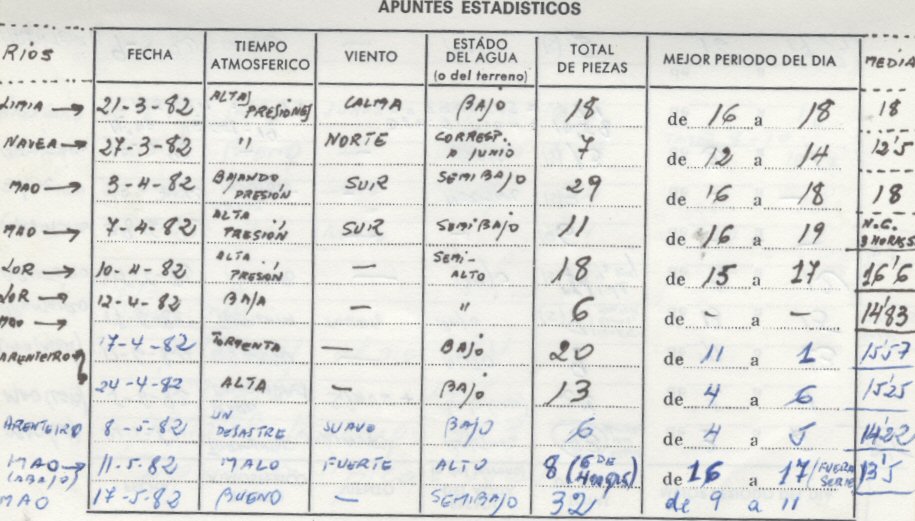 APUNTES ESTADISTICOS
RIOS FECHA TIEMPO ATMOSFERICO VIENTO ESTADO DEL AGUA (o del terreno) TOTAL DE PIEZAS MEJOR PERIODO DEL DIA MEDIA
LIMIA → 21-3-82 ALTAS PRESIONES CALMA BAJO 18 de 16 a 18 18
NAVEA → 27-3-82 " NORTE CORRESP. A JUNIO 7 de 12 a 14 12'5
MAO → 3-4-82 BAJANDO PRESIÓN SUR SEMIBAJO 29 de 16 a 18 18
MAO → 7-4-82 ALTA PRESIÓN SUR SEMIBAJO 11 de 16 a 19 N.C. 3 HORAS
LOR → 10-4-82 ALTA PRESIÓN — SEMI-ALTO 18 de 15 a 17 16'6
LOR → 12-4-82 BAJA — " 6 de - a - 14'83
MAO → 17-4-82 TORMENTA — BAJO 20 de 11 a 1 15'57
ARENTEIRO 24-4-82 ALTA — BAJO 13 de 4 a 6 15'25
ARENTEIRO 8-5-82 UN DESASTRE SUAVE BAJO 6 de 4 a 5 14'22
MAO → (ABAJO) 11-5-82 MALO FUERTE ALTO 8 (6 DE de 16 a 17 (FUERA SERIE) 13'5
MAO 17-5-82 BUENO — SEMIBAJO 32 de 9 a 11